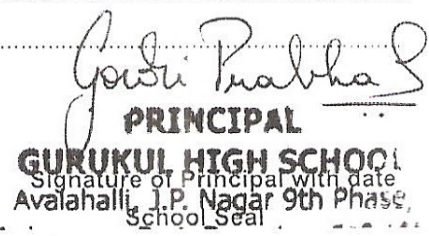 Gowri Prabha S
PRINCIPAL
GURUKUL HIGH SCHOOL
Signature of Principal with date
Avalahalli, J.P. Nagar 9th Phase,
School Seal